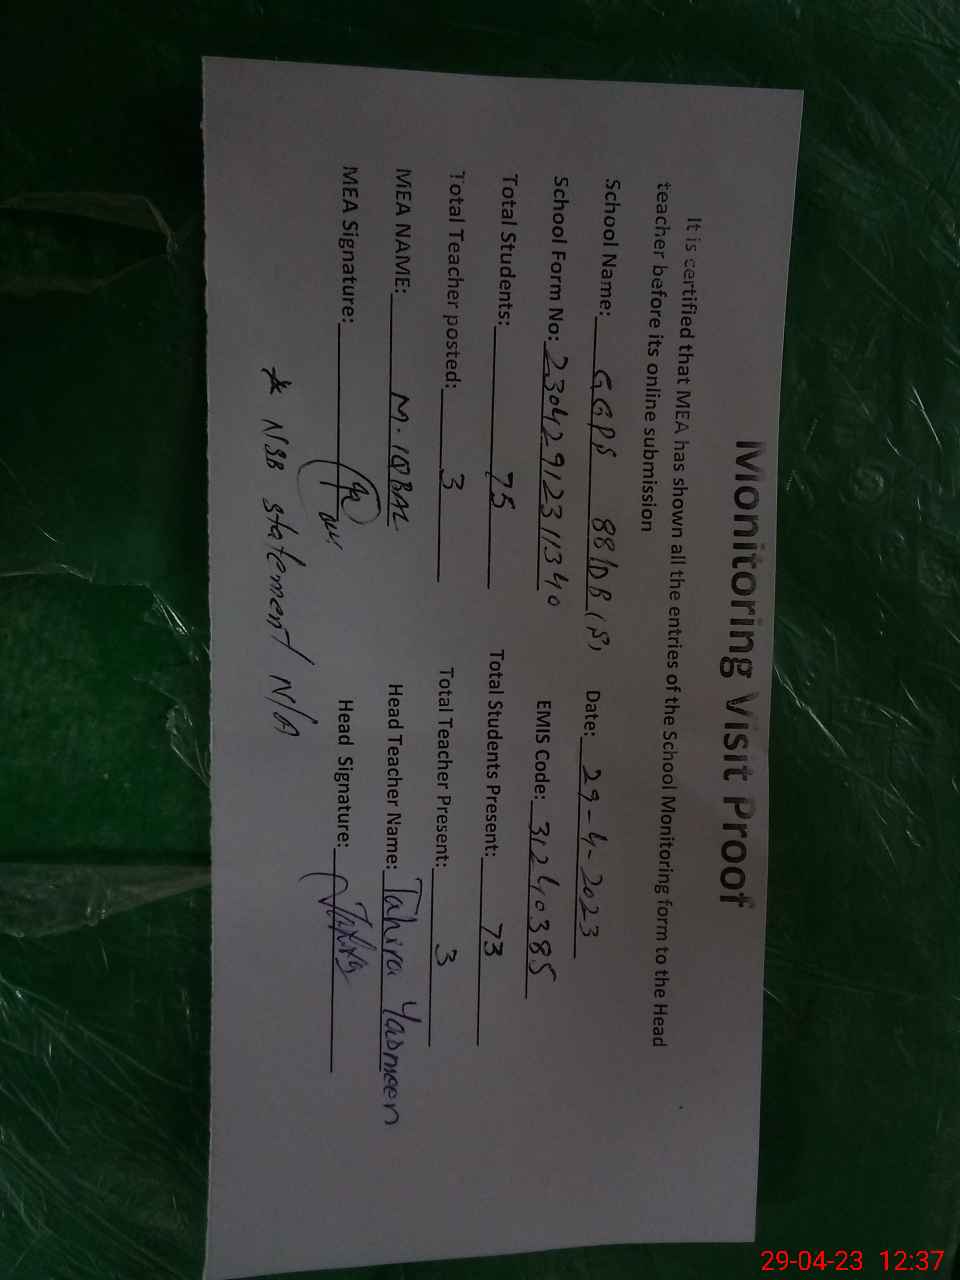 Monitoring Visit Proof
It is certified that MEA has shown all the entries of the School Monitoring form to the Head
teacher before its online submission
School Name: GGPS 88/DB (S) Date: 29-4-2023
School Form No: 23042912311340 EMIS Code: 31240385
Total Students: 75 Total Students Present: 73
Total Teacher posted: 3 Total Teacher Present: 3
MEA NAME: M. IQBAL Head Teacher Name: Tahira Yasmeen
MEA Signature: Head Signature:
* NSB statement N/A
29-04-23 12:37